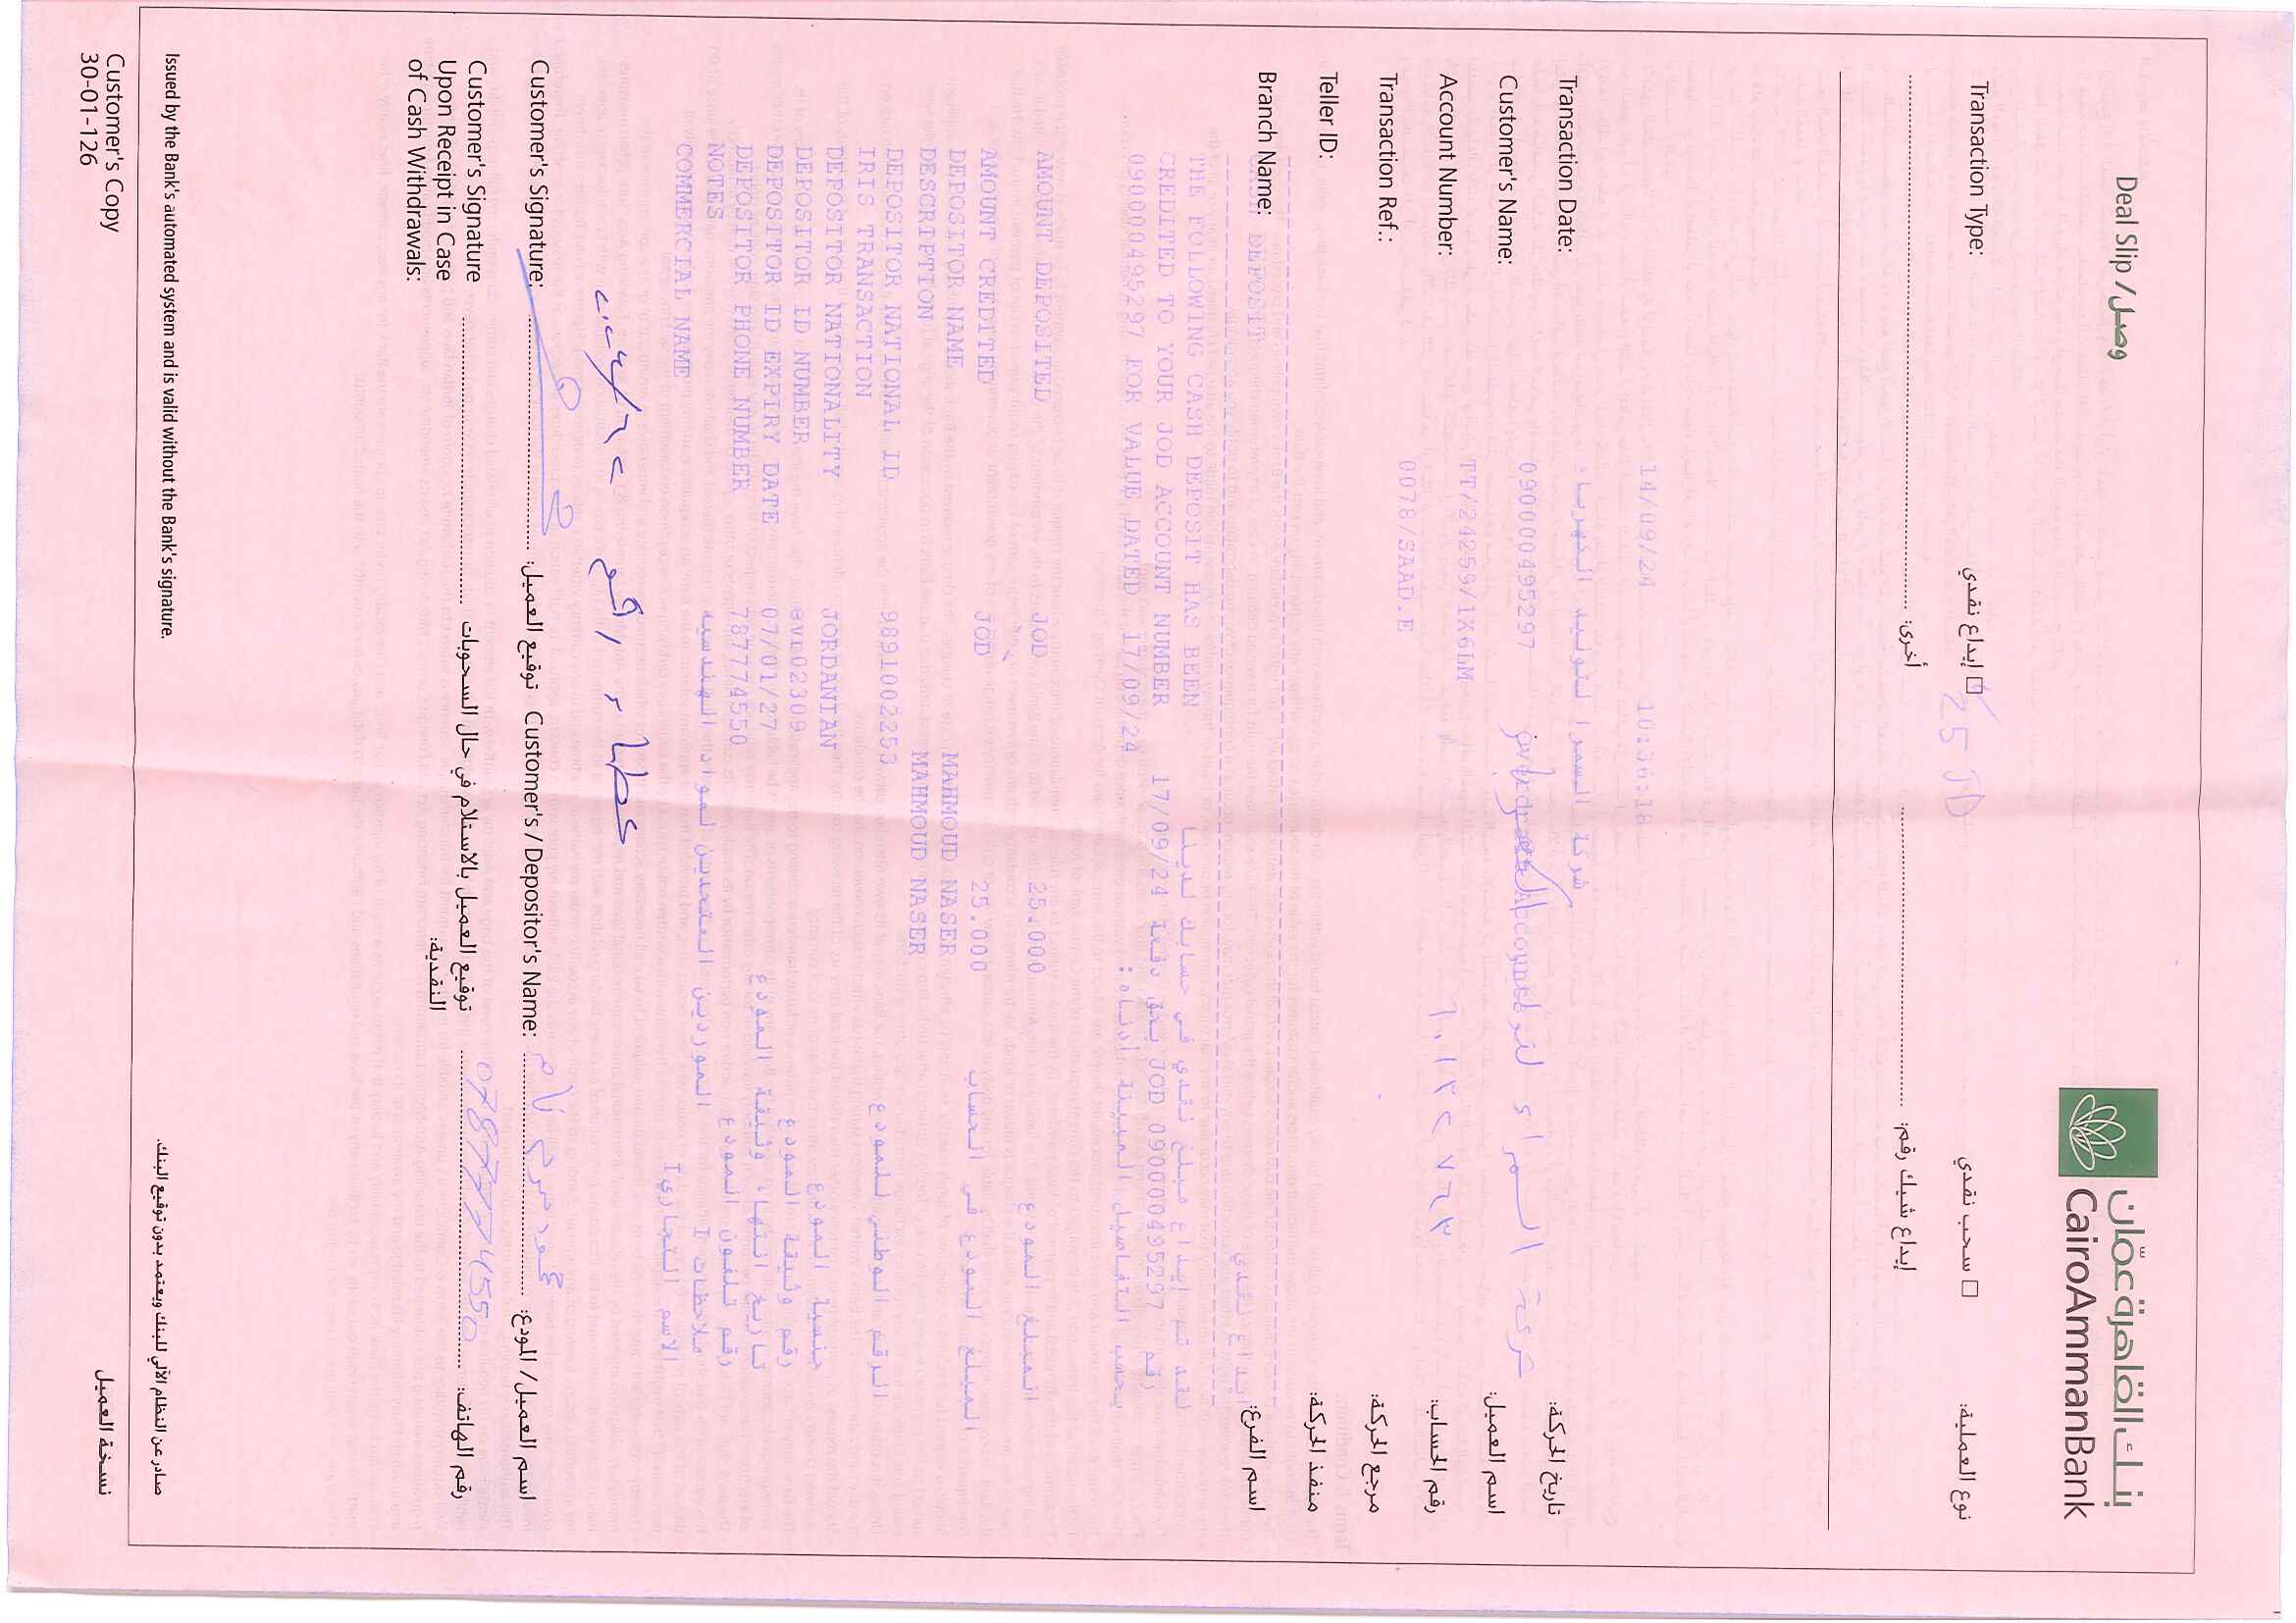 Deal Slip / وصل
بنك القاهرة عمّان
CairoAmmanBank
Transaction Type: إيداع نقدي سحب نقدي نوع العملية:
25 JD
أخرى: إيداع شيك رقم:
14/09/24 10:36:18
Transaction Date: تاريخ الحركة:
شركة السمرا لتوليد الكهرباء
Customer's Name: اسم العميل:
0900000495297
شركة السمراء لتوليد
Account Number: رقم الحساب:
TT/24259/1X6LM
Transaction Ref.: مرجع الحركة:
0078/SAAD.E
Teller ID: منفذ الحركة:
Branch Name: اسم الفرع:
DEPOSIT
THE FOLLOWING CASH DEPOSIT HAS BEEN لقد تم إيداع مبلغ نقدي في حسابك لدينا
CREDITED TO YOUR JOD ACCOUNT NUMBER رقم 0900000495297 JOD بحق دفعة 17/09/24
0900000495297 FOR VALUE DATED 17/09/24 بحسب التفاصيل المبينة أدناه:
AMOUNT DEPOSITED JOD 25.000 المبلغ المودع
AMOUNT CREDITED JOD 25.000 المبلغ المودع في الحساب
DEPOSITOR NAME MAHMOUD NASER
DESCRIPTION MAHMOUD NASER
DEPOSITOR NATIONAL ID 9891002253 الرقم الوطني للمودع
IRIS TRANSACTION
DEPOSITOR NATIONALITY JORDANIAN جنسية المودع
DEPOSITOR ID NUMBER رقم وثيقة المودع
DEPOSITOR ID EXPIRY DATE 07/01/27 تاريخ انتهاء وثيقة المودع
DEPOSITOR PHONE NUMBER 787774550 رقم تلفون المودع
NOTES ملاحظات
COMMERCIAL NAME الاسم التجاري
عطاء رقم
Customer's Signature: توقيع العميل: Customer's / Depositor's Name: اسم العميل / المودع:
Customer's Signature
Upon Receipt in Case
of Cash Withdrawals:
توقيع العميل بالاستلام في حال السحوبات
النقدية:
0787774550 رقم الهاتف:
Issued by the Bank's automated system and is valid without the Bank's signature.
صادر عن النظام الآلي للبنك ويعتمد بدون توقيع البنك.
Customer's Copy نسخة العميل
30-01-126